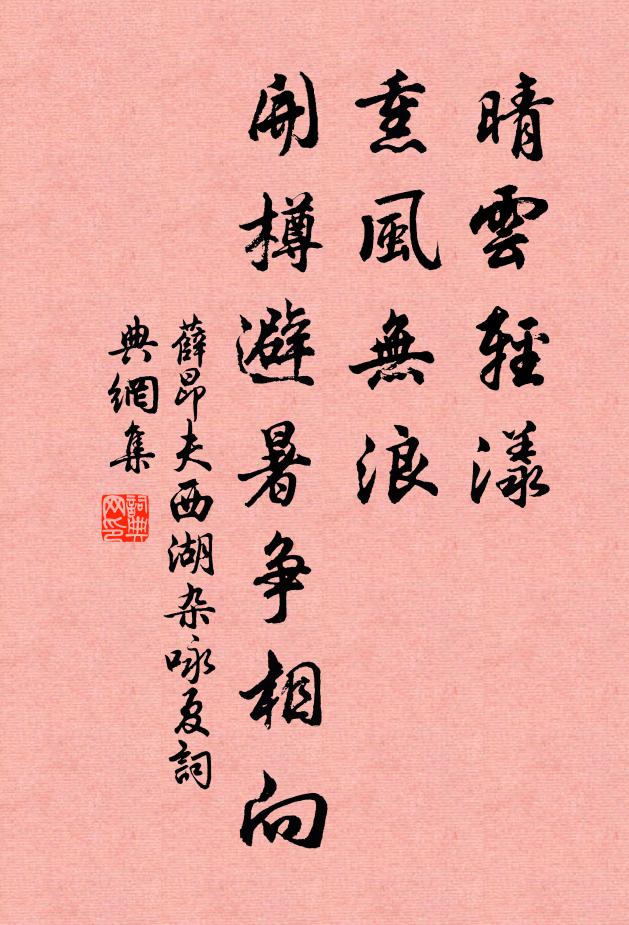 晴雲輕漾
熏風無浪
開樽避暑争相向
薛昂夫西湖杂咏夏詞
典網集
詞典网印